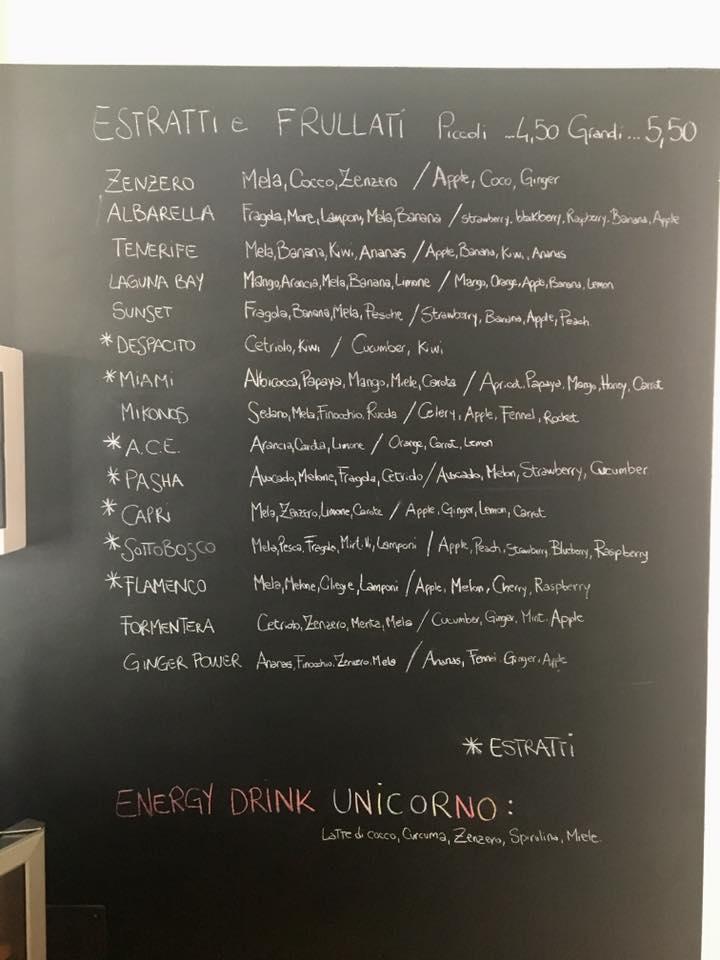 ESTRATTi e FRULLATi Piccoli ...4,50 Grandi... 5,50
ZENZERO Mela, Cocco, Zenzero / Apple, Coco, Ginger
ALBARELLA Fragola, More, Lamponi, Mela, Banana / Strawberry, blackberry, Raspberry, Banana, Apple
TENERIFE Mela, Banana, Kiwi, Ananas / Apple, Banana, Kiwi, Ananas
LAGUNA BAY Mango, Arancia, Mela, Banana, Limone / Mango, Orange, Apple, Banana, Lemon
SUNSET Fragola, Banana, Mela, Pesche / Strawberry, Banana, Apple, Peach
*DESPACITO Cetriolo, Kiwi / Cucumber, Kiwi
*MIAMi Albicocca, Papaya, Mango, Miele, Carota / Apricot, Papaya, Mango, Honey, Carrot
MIKONOS Sedano, Mela, Finocchio, Rucola / Celery, Apple, Fennel, Rocket
*A.C.E. Arancia, Carota, Limone / Orange, Carrot, Lemon
*PASHA Avocado, Melone, Fragola, Cetriolo / Avocado, Melon, Strawberry, Cucumber
*CAPRi Mela, Zenzero, Limone, Carote / Apple, Ginger, Lemon, Carrot
*SOTTOBOSCO Mela, Pesca, Fragola, Mirtilli, Lamponi / Apple, Peach, Strawberry, Blueberry, Raspberry
*FLAMENCO Mela, Melone, Ciliegie, Lamponi / Apple, Melon, Cherry, Raspberry
FORMENTERA Cetriolo, Zenzero, Menta, Mela / Cucumber, Ginger, Mint, Apple
GINGER POWER Ananas, Finocchio, Zenzero, Mela / Ananas, Fennel, Ginger, Apple
* ESTRATTi
ENERGY DRINK UNICORNO:
Latte di cocco, Curcuma, Zenzero, Spirulina, Miele.